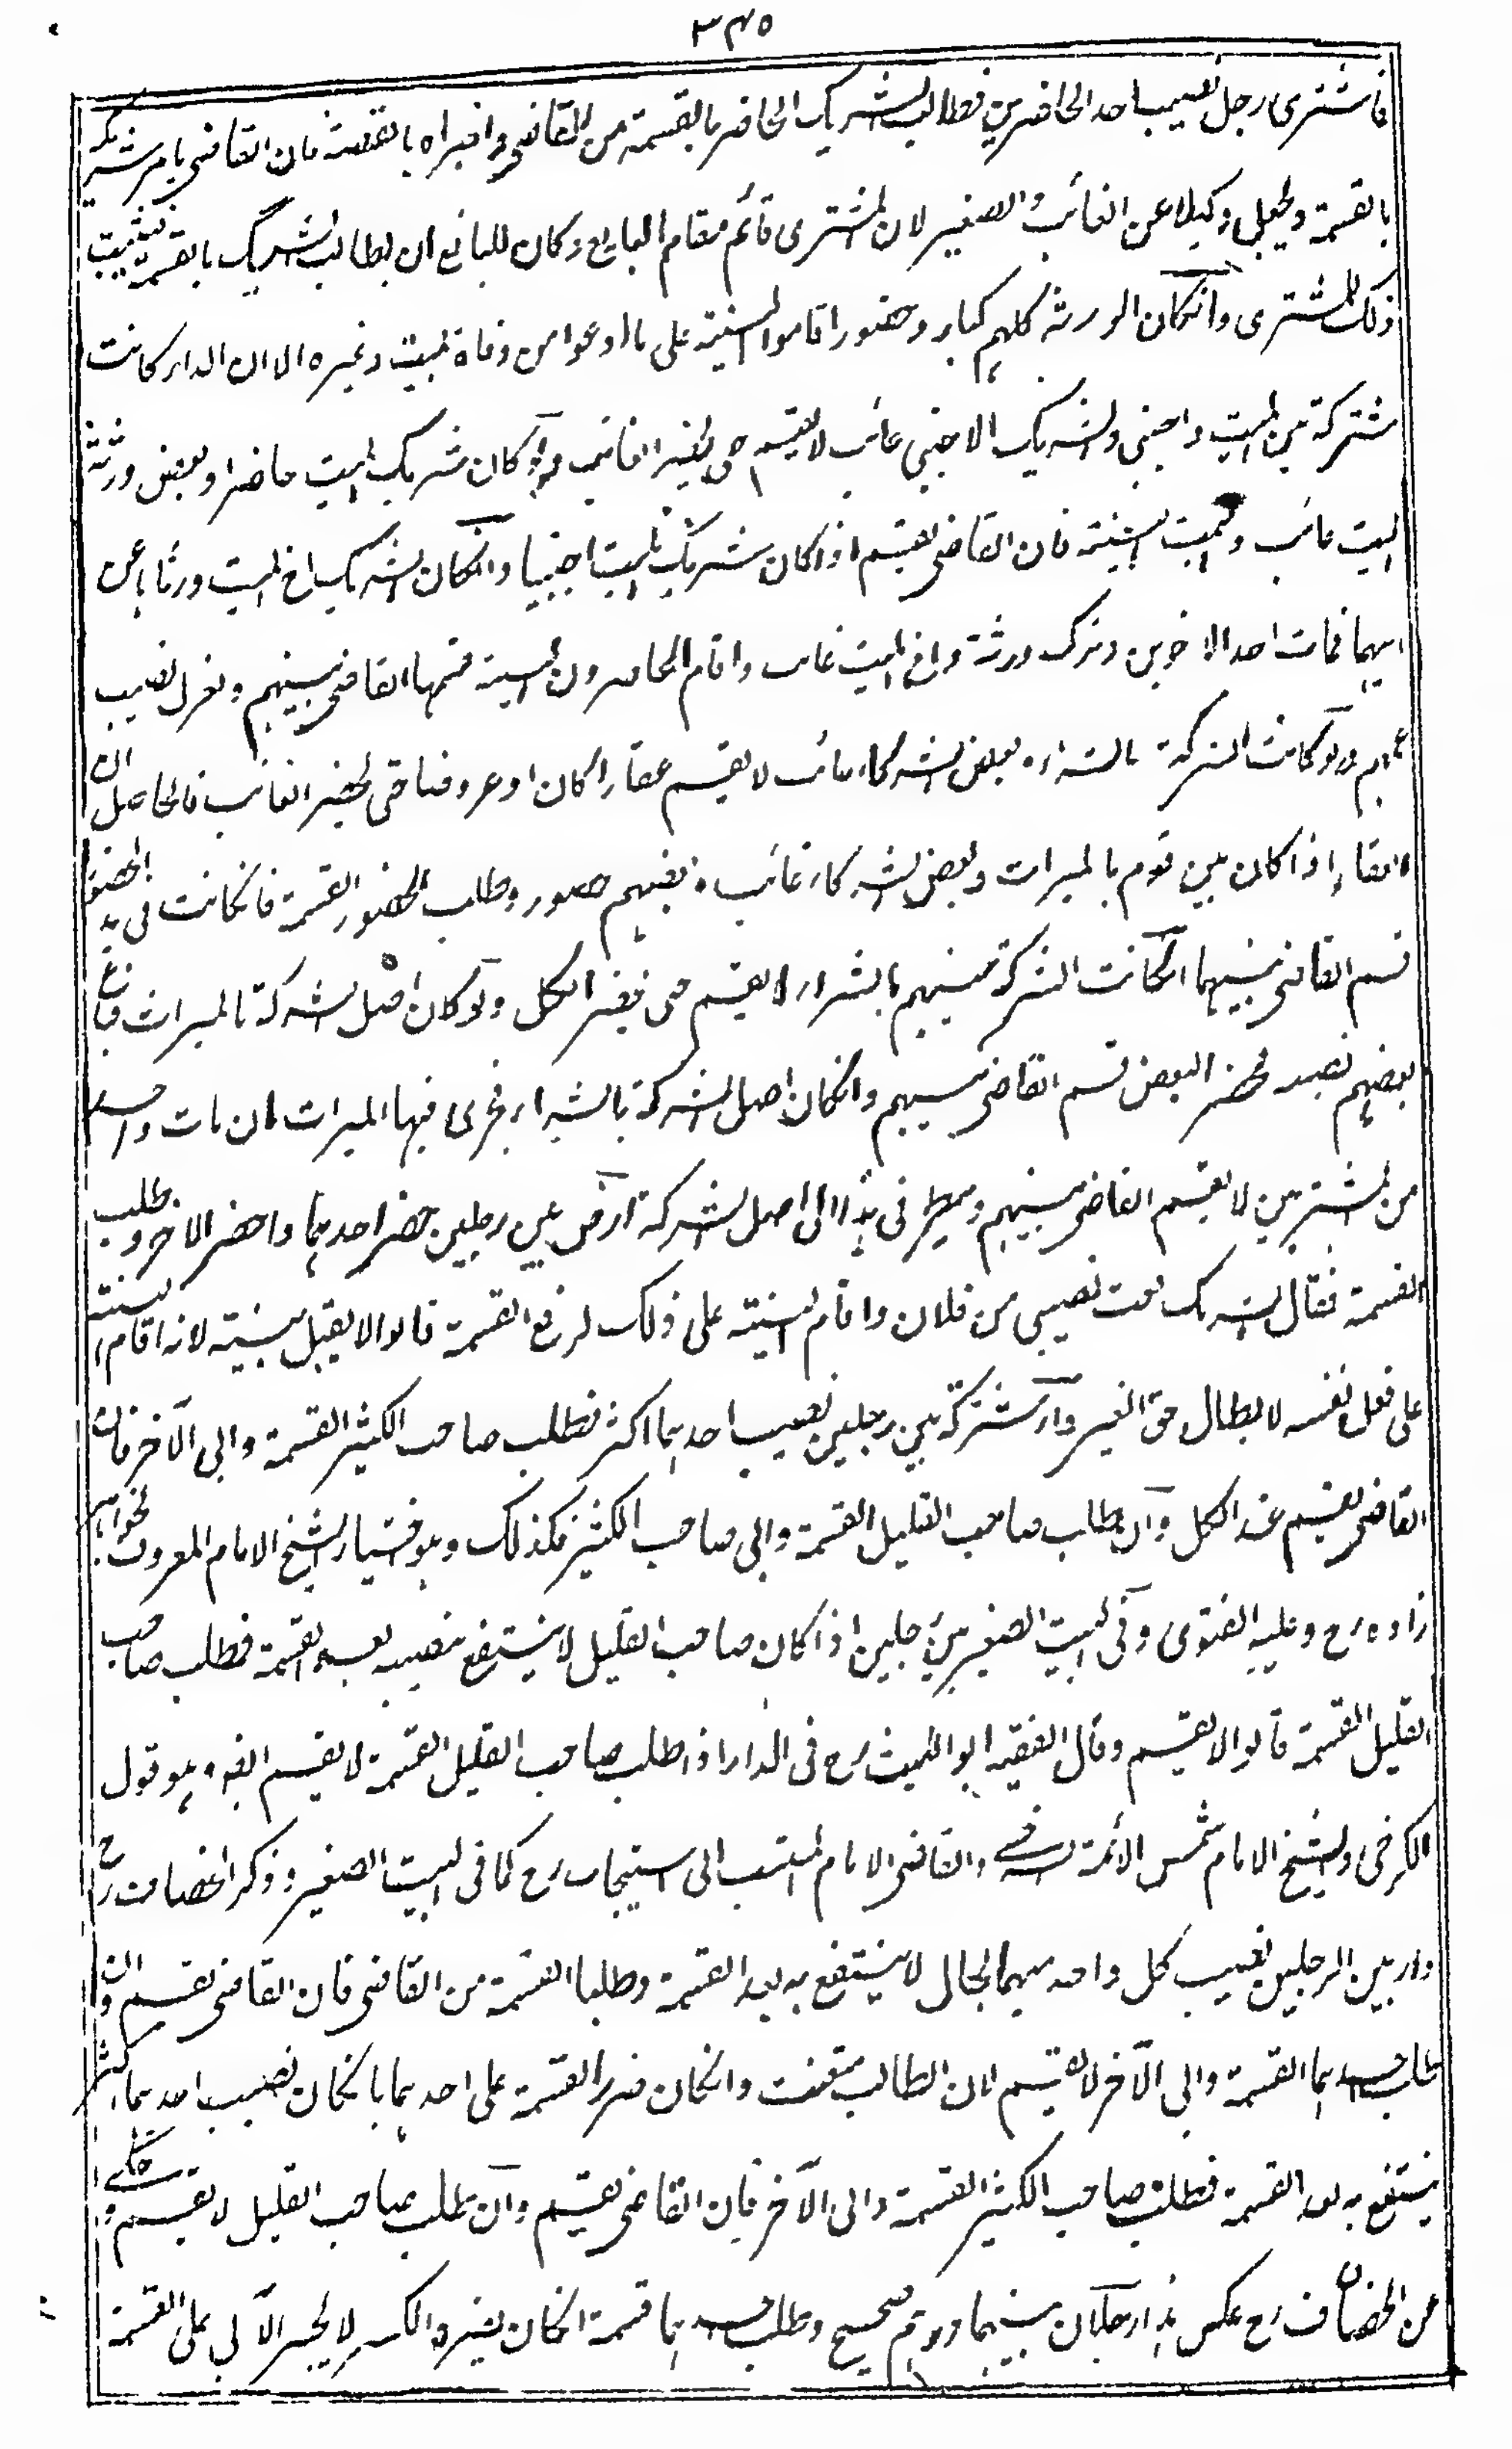 ٣٤٥
فاشترى رجل نصيب احد الحاضرين فطالب الشريك الحاضر بالقسمة من القاضى واخبراه بالقصة فان القاضى يامر شريكه
بالقسمة ويجعل وكيلا عن الغائب والصغير لان المشترى قائم مقام البايع وكان للبائع ان يطالب الشريك بالقسمة فيثبت
ذلك للمشترى وانكان الورثة كلهم كبار وحضور اقاموا البينة على ما ادعوا من وفاة الميت وغيره الا ان الدار كانت
مشتركة بين الميت واجنبى والشريك الاجنبى غائب لا يقسم حتى يحضر الغائب ولو كان شريك الميت حاضرا وبعض ورثة
الميت غائب البينة فان القاضى يقسم اذا كان شريك الميت اجنبيا وانكان الشريك اخ الميت ورثاها عن
ابيهما فمات احد الاخوين وترك ورثة واخ الميت غائب واقام الحاضرون البينة قسمها القاضى بينهم ويعزل نصيب
عمهم ولو كانت الشركة بالشراء وبعض الشركاء غائب لا يقسم عقارا كان او عروضا حتى يحضر الغائب فالحاصل ان
العقار اذا كان بين قوم بالميراث وبعض الشركاء غائب وبعضهم حضور وطلب الحضور القسمة فانكانت فى يد الحضور
قسم القاضى بينهما انكانت الشركة بينهم بالشراء لا يقسم حتى يحضر الكل ولو كان اصل الشركة بالميراث فباع
بعضهم نصيبه فحضر البعض قسم القاضى بينهم وانكان اصل الشركة بالشراء فجرى فيها الميراث بان مات واحد
من المشتريين لا يقسم القاضى بينهم وينظر فى هذا الى اصل الشركة ارض بين رجلين حضر احدهما واحضر الاخر وطلب
القسمة فقال الشريك بعت نصيبى من فلان واقام البينة على ذلك لدفع القسمة قالوا لا يقبل بينته لانه اقام البينة
على فعل نفسه لابطال حق الغير دار مشتركة بين رجلين نصيب احدهما اكثر فطلب صاحب الكثير القسمة وابى الآخر فان
القاضى يقسم عند الكل وان طلب صاحب القليل القسمة وابى صاحب الكثير فكذلك وهو اختيار الشيخ الامام المعروف بخواهر
زاده رح وعليه الفتوى وفى البيت الصغير بين رجلين اذا كان صاحب القليل لا ينتفع بنصيبه بعد القسمة فطلب صاحب
القليل القسمة قالوا لا يقسم وقال الفقيه ابو الليث رح فى الدار اذا طلب صاحب القليل القسمة لا يقسم ايضا وهو قول
الكرخى والشيخ الامام شمس الائمة السرخسى والقاضى الامام المنتسب الى اسبيجاب رح كما فى البيت الصغير وذكر الخصاف رح
دار بين الرجلين نصيب كل واحد منهما بحال لا ينتفع به بعد القسمة وطلبا القسمة من القاضى فان القاضى يقسم وان
طلب احدهما القسمة وابى الآخر لا يقسم لان الطالب متعنت وانكان ضرر القسمة على احدهما بانكان نصيب احدهما اكثر
ينتفع به بعد القسمة فطلب صاحب الكثير القسمة وابى الآخر فان القاضى يقسم وان طلب صاحب القليل لا يقسم وحكى
عن الخصاف رح عكس هذا رجلان بينهما درهم صحيح وطلب احدهما قسمة انكان يضره الكسر لا يجبر الآبى على القسمة